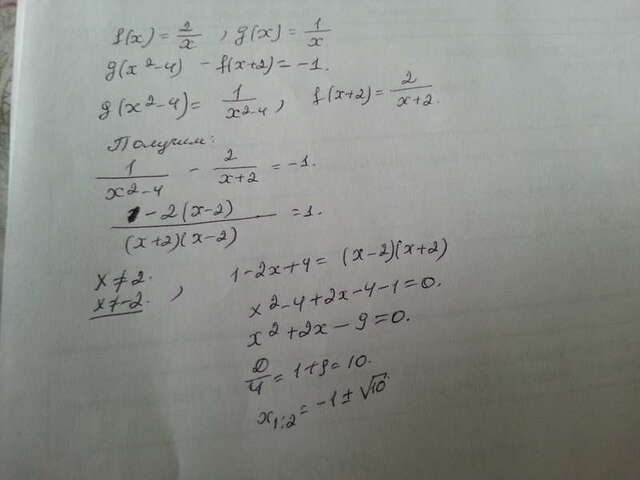 f(x) = 2/x , g(x) = 1/x
g(x²-4) - f(x+2) = -1.
g(x²-4) = 1/(x²-4) , f(x+2) = 2/(x+2).
Получим:
1/(x²-4) - 2/(x+2) = -1.
(1-2(x-2))/((x+2)(x-2)) = 1.
x≠2.
x≠-2. , 1-2x+4 = (x-2)(x+2)
x²-4+2x-4-1=0.
x²+2x-9=0.
D/4 = 1+9=10.
x₁;₂ = -1±√10.